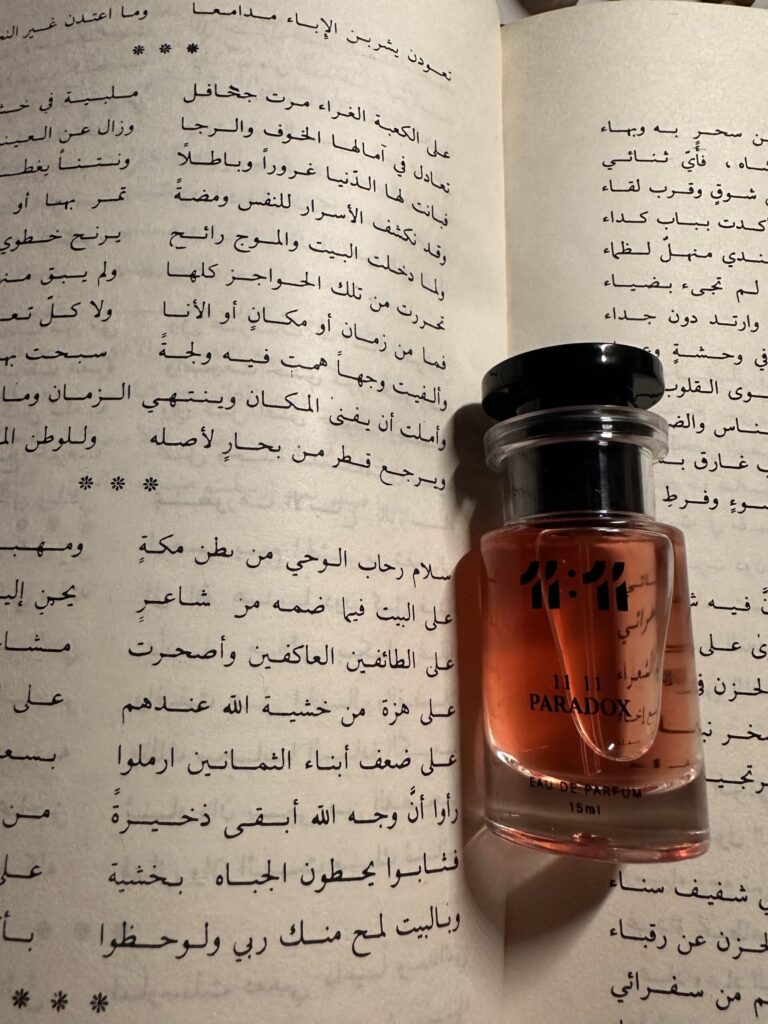 تعودن يشربن الإباء مدامعا وما اعتدن غير
* * *
على الكعبة الغراء مرت جحافل ملبية في
تعادل في آمالها الخوف والرجا وزال عن
فبانت لها الدّنيا غروراً وباطلاً ونتناً
وقد نكشف الأسرار للنفس ومضةً تمر بها أو
ولما دخلت البيت والموج رائح يرنح خطوي
تحررت من تلك الحواجز كلها ولم يبق
فما من زمان أو مكانٍ أو الأنا ولا كلّ
وألفيت وجهاً همت فيه ولجةً سبحت
وأملت أن يفنى المكان وينتهي الزمان
ويرجع قطر من بحارٍ لأصله وللوطن
* * *
سلام رحاب الوحي من بطن مكةٍ
على البيت فيما ضمه من شاعرٍ يحن
على الطائفين العاكفين وأصحرت
على هزة من خشية الله عندهم على
على ضعف أبناء الثمانين ارملوا
رأوا أنَّ وجه الله أبقى ذخيرةً من
فثابوا يحطون الجباه بخشية
وبالبيت لمح منك ربي ولوحظوا
* * *
من سحرٍ به وبهاء
، فأيّ ثنائي
شوقٍ وقرب لقاء
كدت بباب كداء
منهلٌ لظماء
لم تجىء بضياء
وارتد دون جداء
في وحشةٍ
القلوب
غارق
وفرط
فيه
على
الحزن
شفيف سناء
الحزن عن رقباء
من سفرائي
11:11
11 11
PARADOX
EAU DE PARFUM
15ml